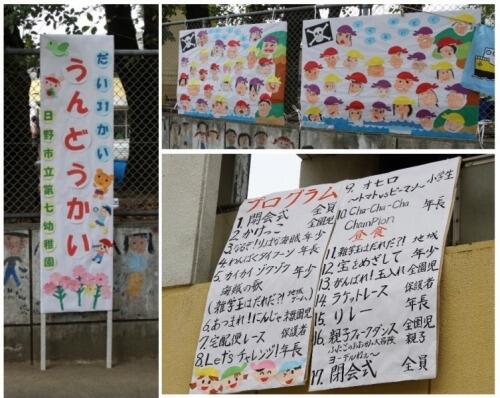 だい31かい
うんどうかい
日野市立第七幼稚園
プログラム
1. 開会式 全員
2. かけっこ 全園児
3. なるぞ!りっぱな海賊 年少
4. わんぱくタイフーン 年長
5. カイカイゾクゾク 年少
海賊の歌
(雑学王はだれだ?! 地域
6. あつまれ!にんじゃ 未就園児
7. 宅配便レース 保護者
8. Let'sチャレンジ! 年長
9. オセロ 小学生
〜トマトvsピーマン〜
10. Cha-Cha-Cha 年長
Champion
昼食
11. 雑学王はだれだ?! 地域
12. 宝をめざして 年少
13. がんばれ!玉入れ 全園児
14. ラケットレース 保護者
15. リレー 年長
16. 親子フォークダンス 全園児
親子
17. 閉会式 全員